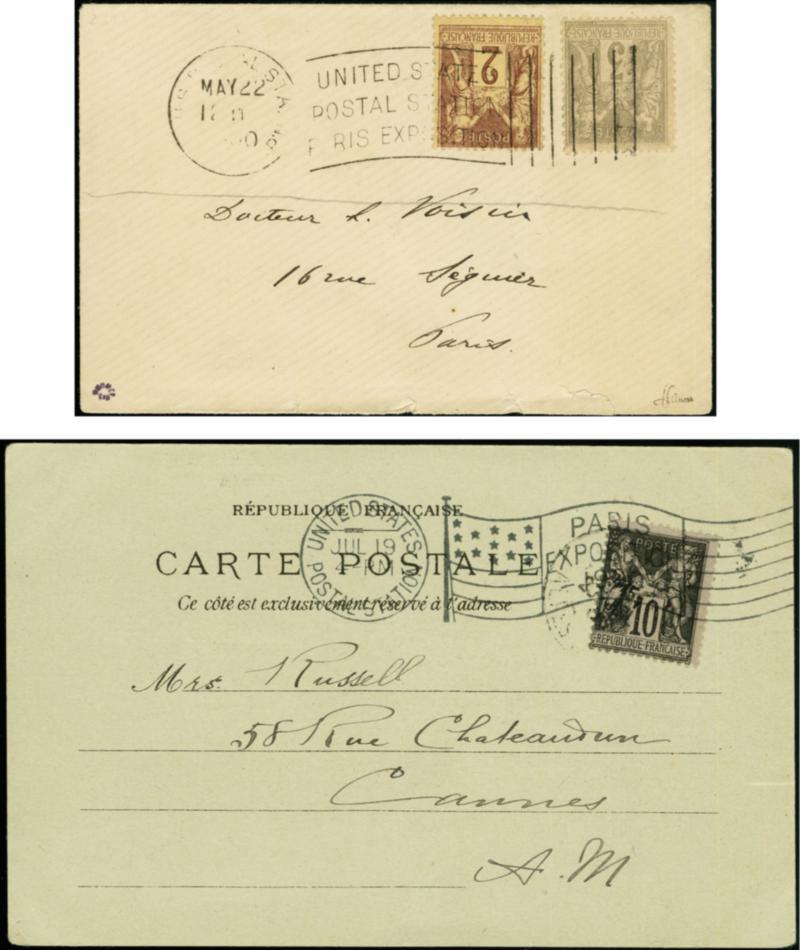 MAY 22
UNITED STATES
POSTAL STATION
PARIS EXPOSITION
2
3
REPUBLIQUE FRANÇAISE
REPUBLIQUE FRANÇAISE
Docteur h. Voisin
16 rue Séguier
Paris.
RÉPUBLIQUE FRANÇAISE
CARTE POSTALE
Ce côté est exclusivement réservé à l'adresse
UNITED STATES
JUL 19
4- PM
POSTAL STATION
PARIS
POSTE
10
REPUBLIQUE FRANÇAISE
Mrs. Russell
58 Rue Chateaudun
Cannes
A. M